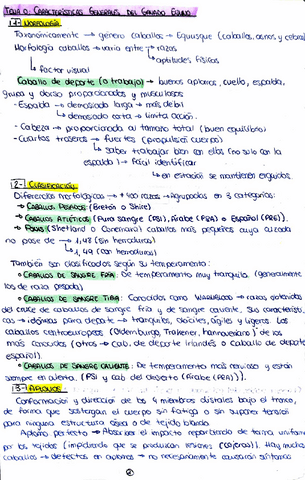 TEMA 0: CARACTERÍSTICAS GENERALES DEL GANADO EQUINO
1- MORFOLOGÍA
Taxonómicamente → género caballos → Equisque (caballos, asnos y cebras)
Morfología caballos → varía entre → razas
→ aptitudes físicas
→ factor visual
Caballo de deporte (o trabajo) → buenos aplomos, cuello, espalda,
grupa y dorso proporcionados y musculosos
- Espalda → demasiado larga → más débil
→ demasiado corta → limita acción.
- Cabeza → proporcionada al tamaño total (buen equilibrio)
- Cuartos traseros → fuertes (propulsión cuerpo)
→ saber trabajar bien con ellos (no solo con la
espalda) → fácil identificar
→ en estación se mantienen erguidos.
2- CLASIFICACIÓN
Diferencias morfológicas → + 400 razas → Agrupados en 3 categorías:
→ CABALLOS PESADOS (Bretón o Shire)
→ CABALLOS ATLÉTICOS (Pura sangre (PSI), Árabe (PRA) o Español (PRE)).
→ PONIS (Shetland o Connemara) caballos más pequeños cuya alzada
no pase de → 1,48 (sin herraduras)
→ 1,49 (con herraduras)
También son clasificados según su temperamento:
• CABALLOS DE SANGRE FRÍA: De temperamento muy tranquilo. (generalmente
los de raza pesada)
• CABALLOS DE SANGRE TIBIA: Conocidos como WARMBLOOD → razas obtenidas
del cruce de caballos de sangre fría y de sangre caliente. Sus característi-
cas → idóneos para deporte → tranquilos, dóciles, ágiles y ligeros. Los
caballos centroeuropeos (Oldemburgo, Trakener, Hannoveriano) de los
más conocidos (otros → cab. de deporte irlandés o caballo de deporte
español).
• CABALLOS DE SANGRE CALIENTE: De temperamento más nervioso y están
siempre en alerta. (PSI y cab. del desierto (Árabe (PRA))).
3- APLOMOS
Conformación y dirección de los 4 miembros distales bajo el tronco,
de forma que sostengan el cuerpo sin fatiga o sin suponer tensión
para ninguna estructura ósea o de tejido blando.
Aplomo perfecto → Absorber el impacto repartiendo de forma uniforme
por los tejidos (impidiendo que se produzcan lesiones (cojeras)). Hay muchos
caballos → defectos en aplomos → no necesariamente causarían síntomas